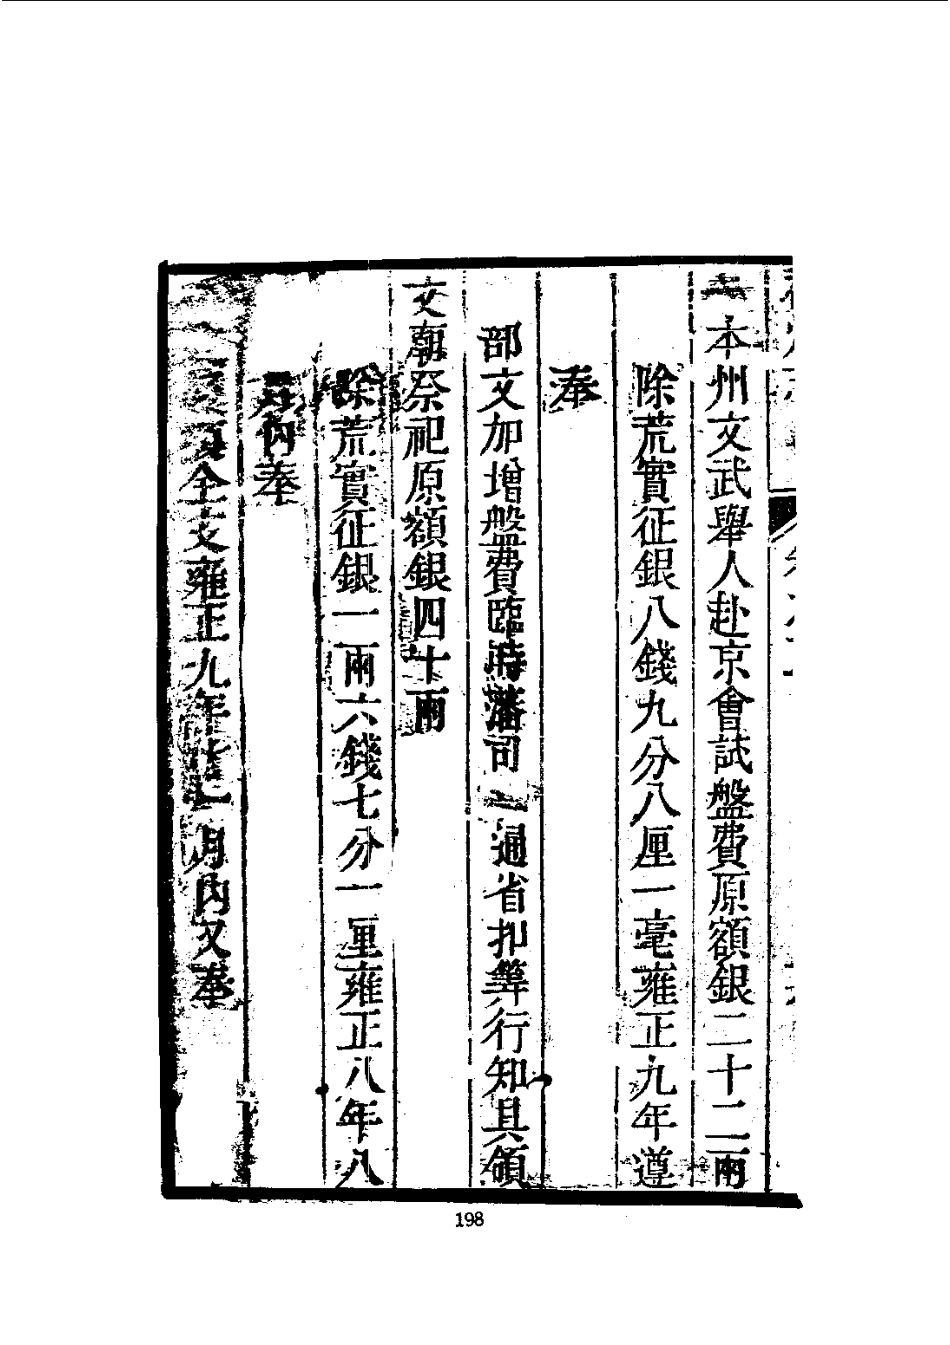 一本州文武舉人赴京會試盤費原額銀二十二兩
除荒實征銀八錢九分八厘一毫雍正九年遵
奉
部文加增盤費臨時藩司 一通省扣筭行知具領
文廟祭祀原額銀四十兩
除荒實征銀一兩六錢七分一厘雍正八年八
月內奉
全支雍正九年 月內又奉
198